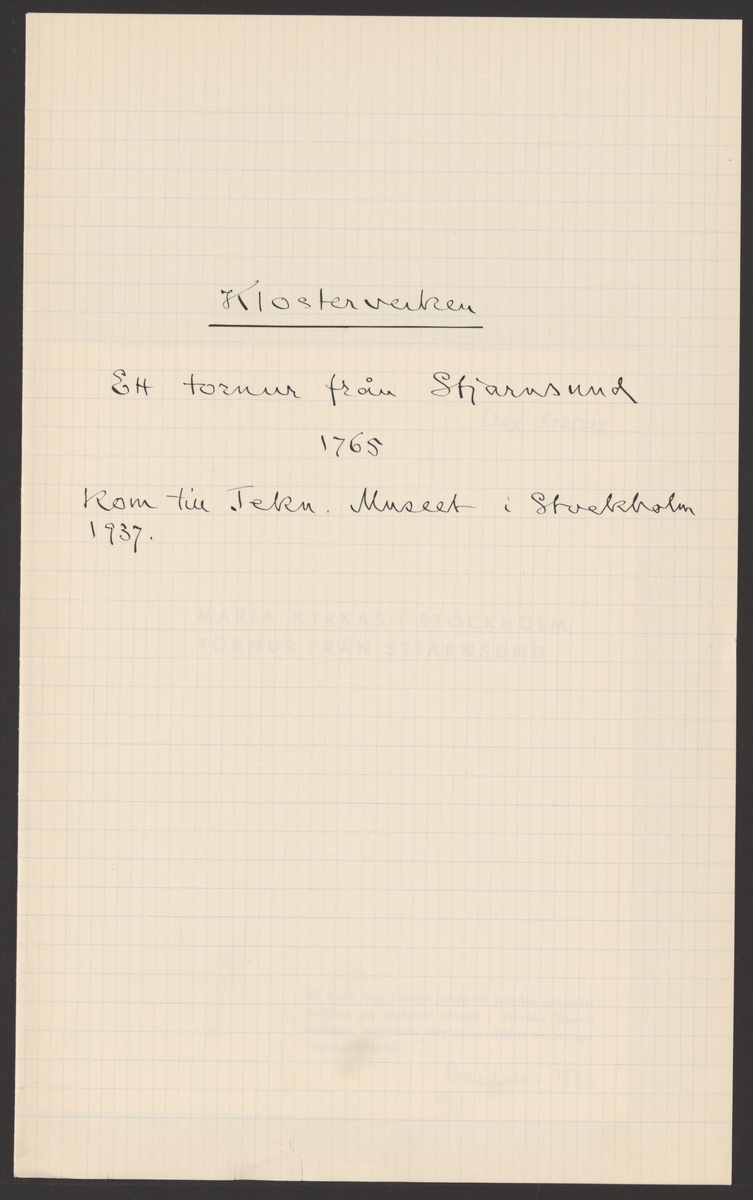 Klosterverken
Ett tornur från Stjarnsund
Dag Trotzig
1765
Kom till Tekn. Museet i Stockholm
1937.
MARIA KYRKAS I STOCKHOLM
TORNUR FRÅN STJÄRNSUND